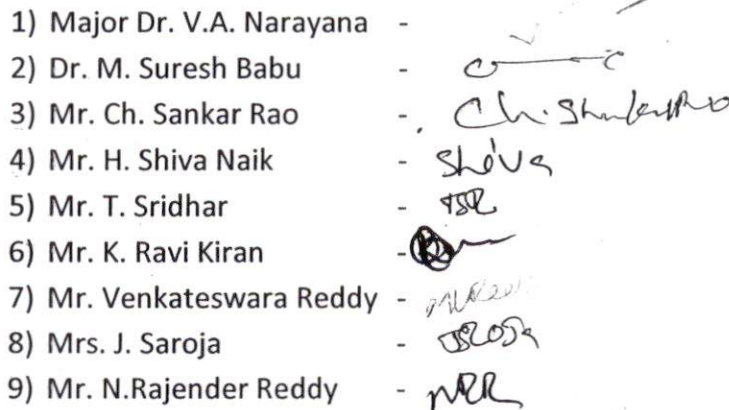 1) Major Dr. V.A. Narayana -
2) Dr. M. Suresh Babu -
3) Mr. Ch. Sankar Rao - Ch.
4) Mr. H. Shiva Naik - Shiva
5) Mr. T. Sridhar - TSR
6) Mr. K. Ravi Kiran -
7) Mr. Venkateswara Reddy -
8) Mrs. J. Saroja -
9) Mr. N.Rajender Reddy - NRR